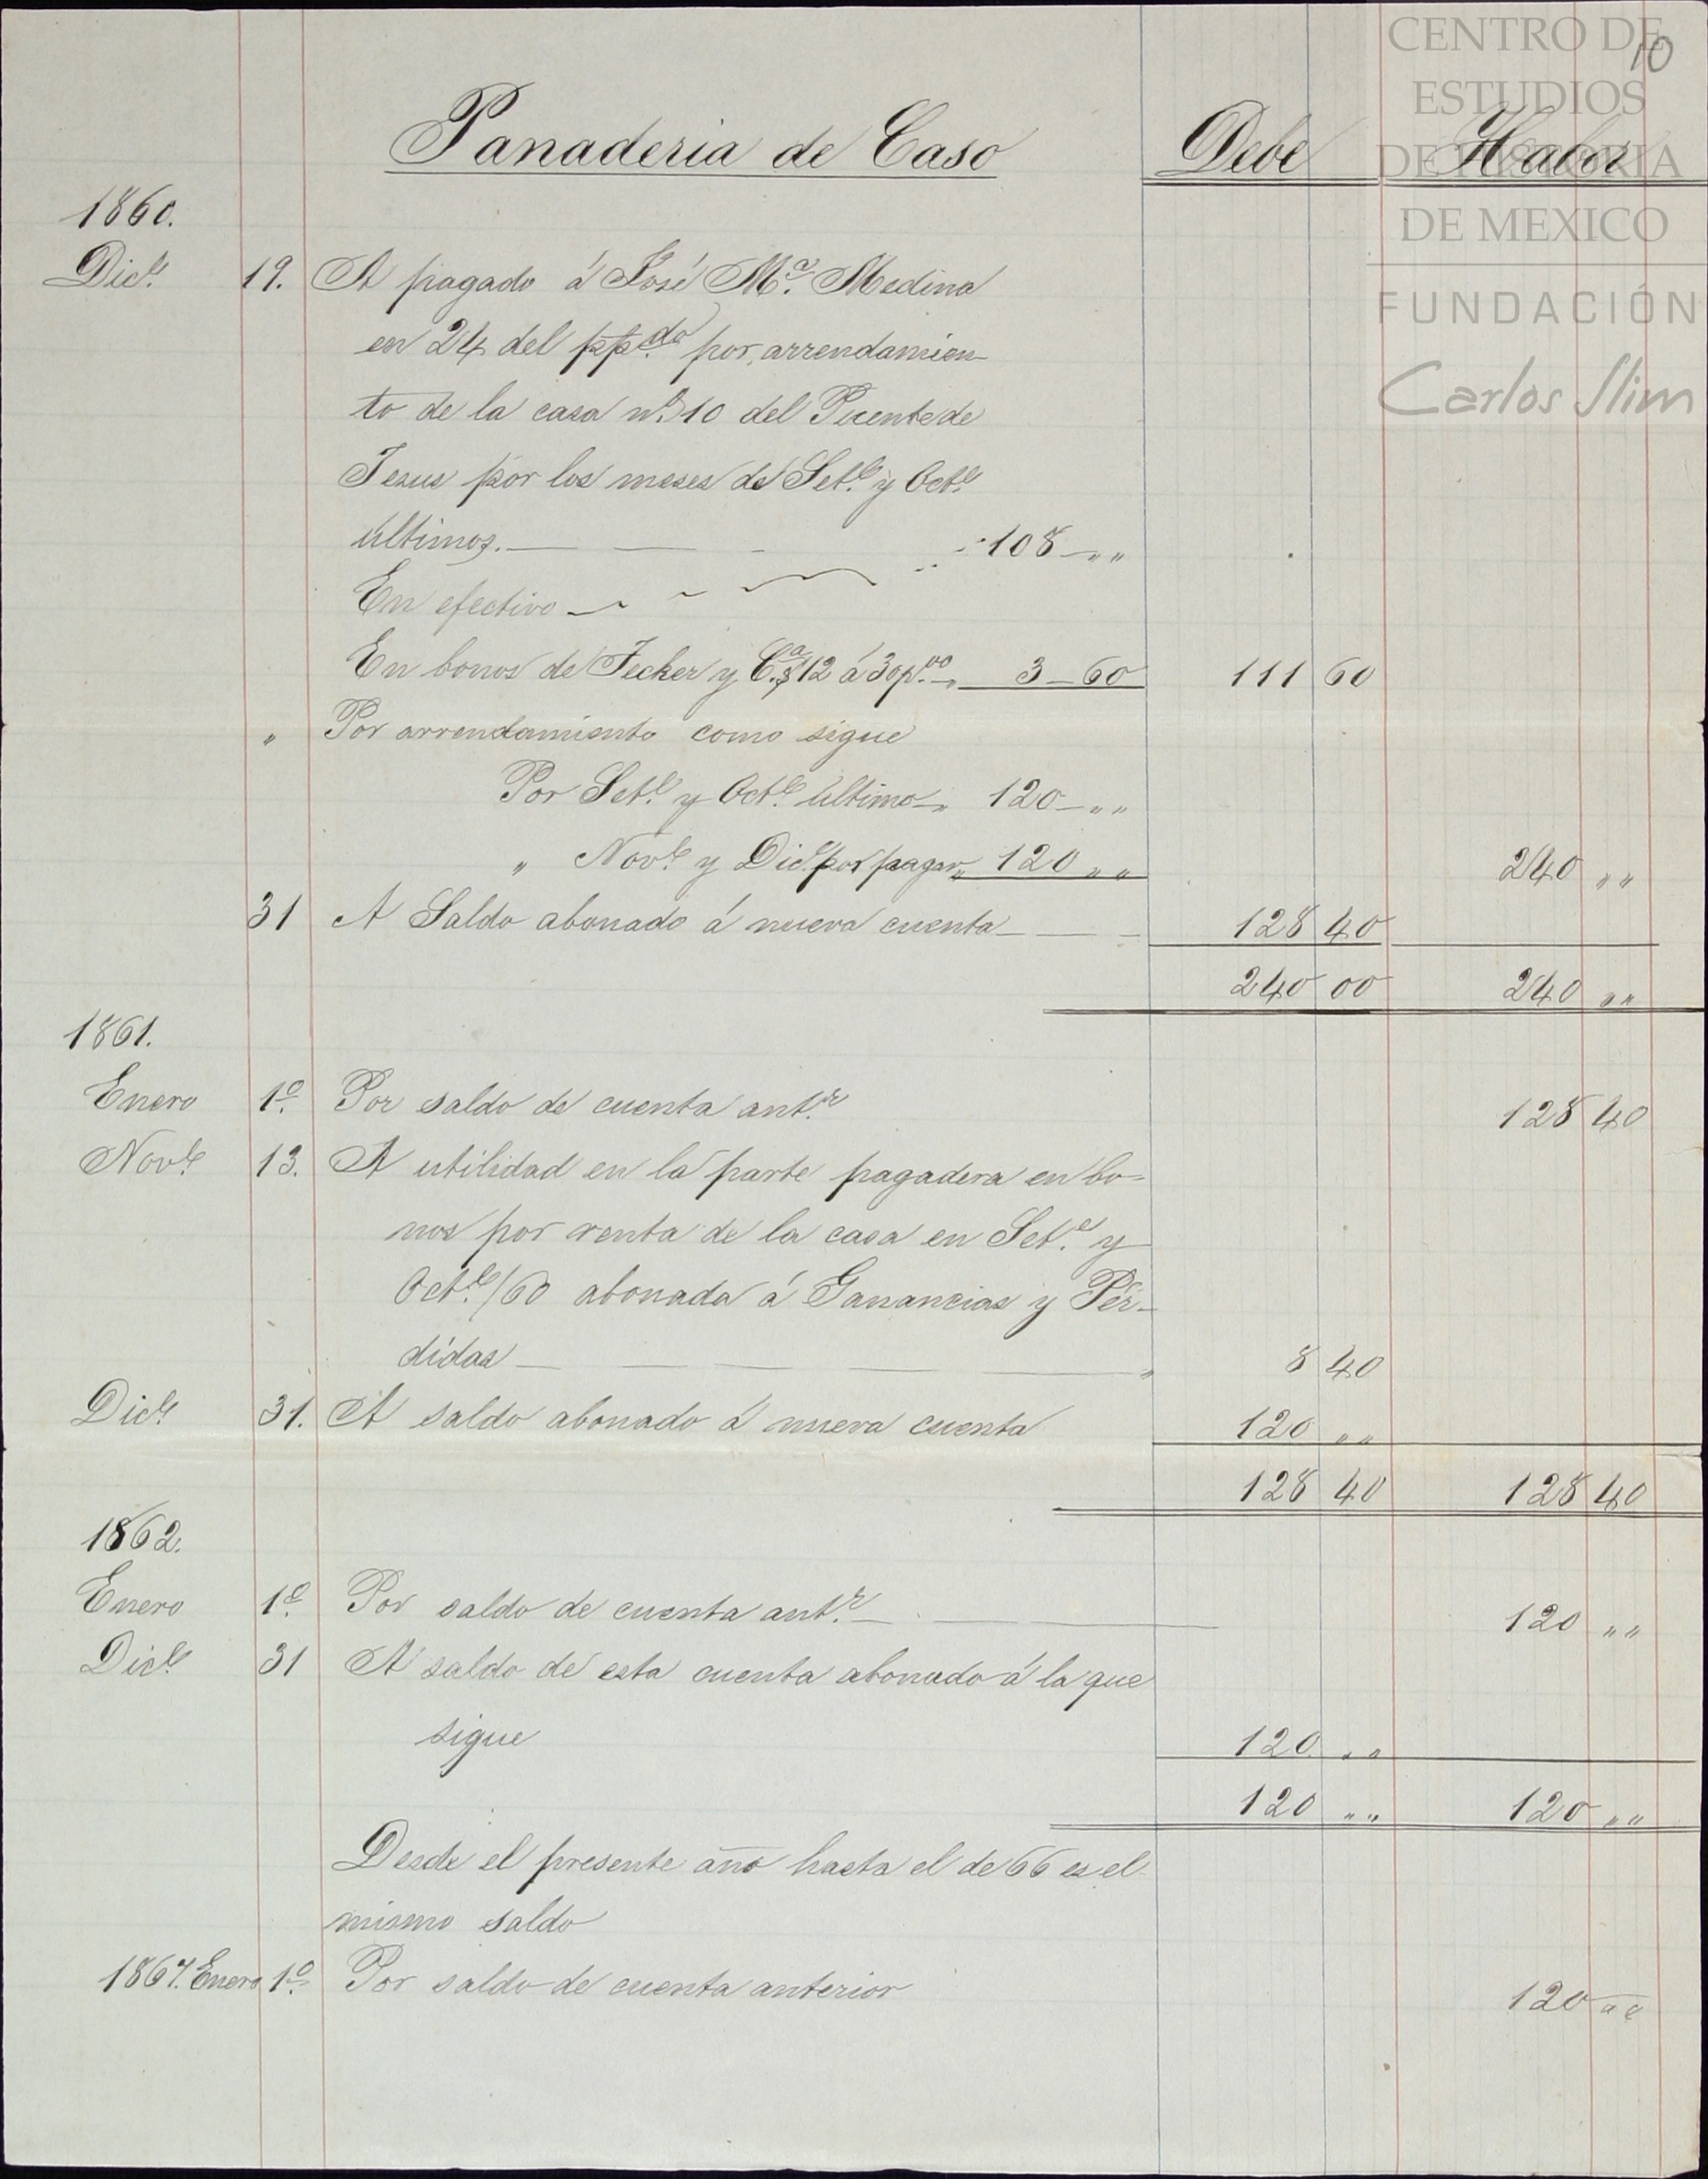 CENTRO DE
ESTUDIOS
DE HISTORIA
DE MEXICO
FUNDACIÓN
Carlos Slim
10
Panaderia de Caso Debe Haber
1860.
Dice. 19. A pagado á José Ma. Medina
en 24 del ppdo. por arrendamien-
to de la casa no. 10 del Puente de
Jesus por los meses de Sete. y Octe.
últimos. 108 " "
En efectivo
En bonos de Jecker y Ca. $12 á 30 p.00 " 3-60 111 60
" Por arrendamiento como sigue
Por Sete. y Octe. último " 120 " "
" Nove. y Dice. por pagar " 120 " " 240 " "
31 A Saldo abonado á nueva cuenta 128 40
240 00 240 " "
1861.
Enero 1o. Por saldo de cuenta antr. 128 40
Nove. 13. A utilidad en la parte pagadera en bo-
nos por renta de la casa en Sete. y
Octe./60 abonada á Ganancias y Pér-
didas " 8 40
Dice. 31. A saldo abonado á nueva cuenta 120 " "
128 40 128 40
1862.
Enero 1o. Por saldo de cuenta antr. 120 " "
Dice. 31 A saldo de esta cuenta abonado á la que
sigue 120 " "
120 " " 120 " "
Desde el presente año hasta el de 66 es el
mismo saldo
1867. Enero 1o. Por saldo de cuenta anterior 120 " "